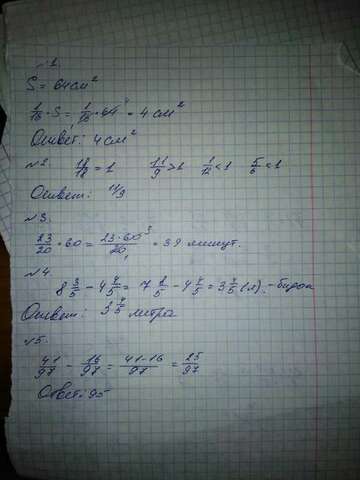 №1.
S = 64 см²
1/16 · S = 1/16 · 64 = 4 см²
Ответ: 4 см²
№2 18/18 = 1 11/9 > 1 1/12 < 1 5/6 < 1
Ответ: 11/9
№3.
23/20 · 60 = 23·60/20 = 39 минут.
№4
8 3/5 - 4 4/5 = 7 8/5 - 4 4/5 = 3 4/5 (л). - бидон
Ответ: 3 4/5 литра
№5
41/97 - 16/97 = 41-16/97 = 25/97
Ответ: